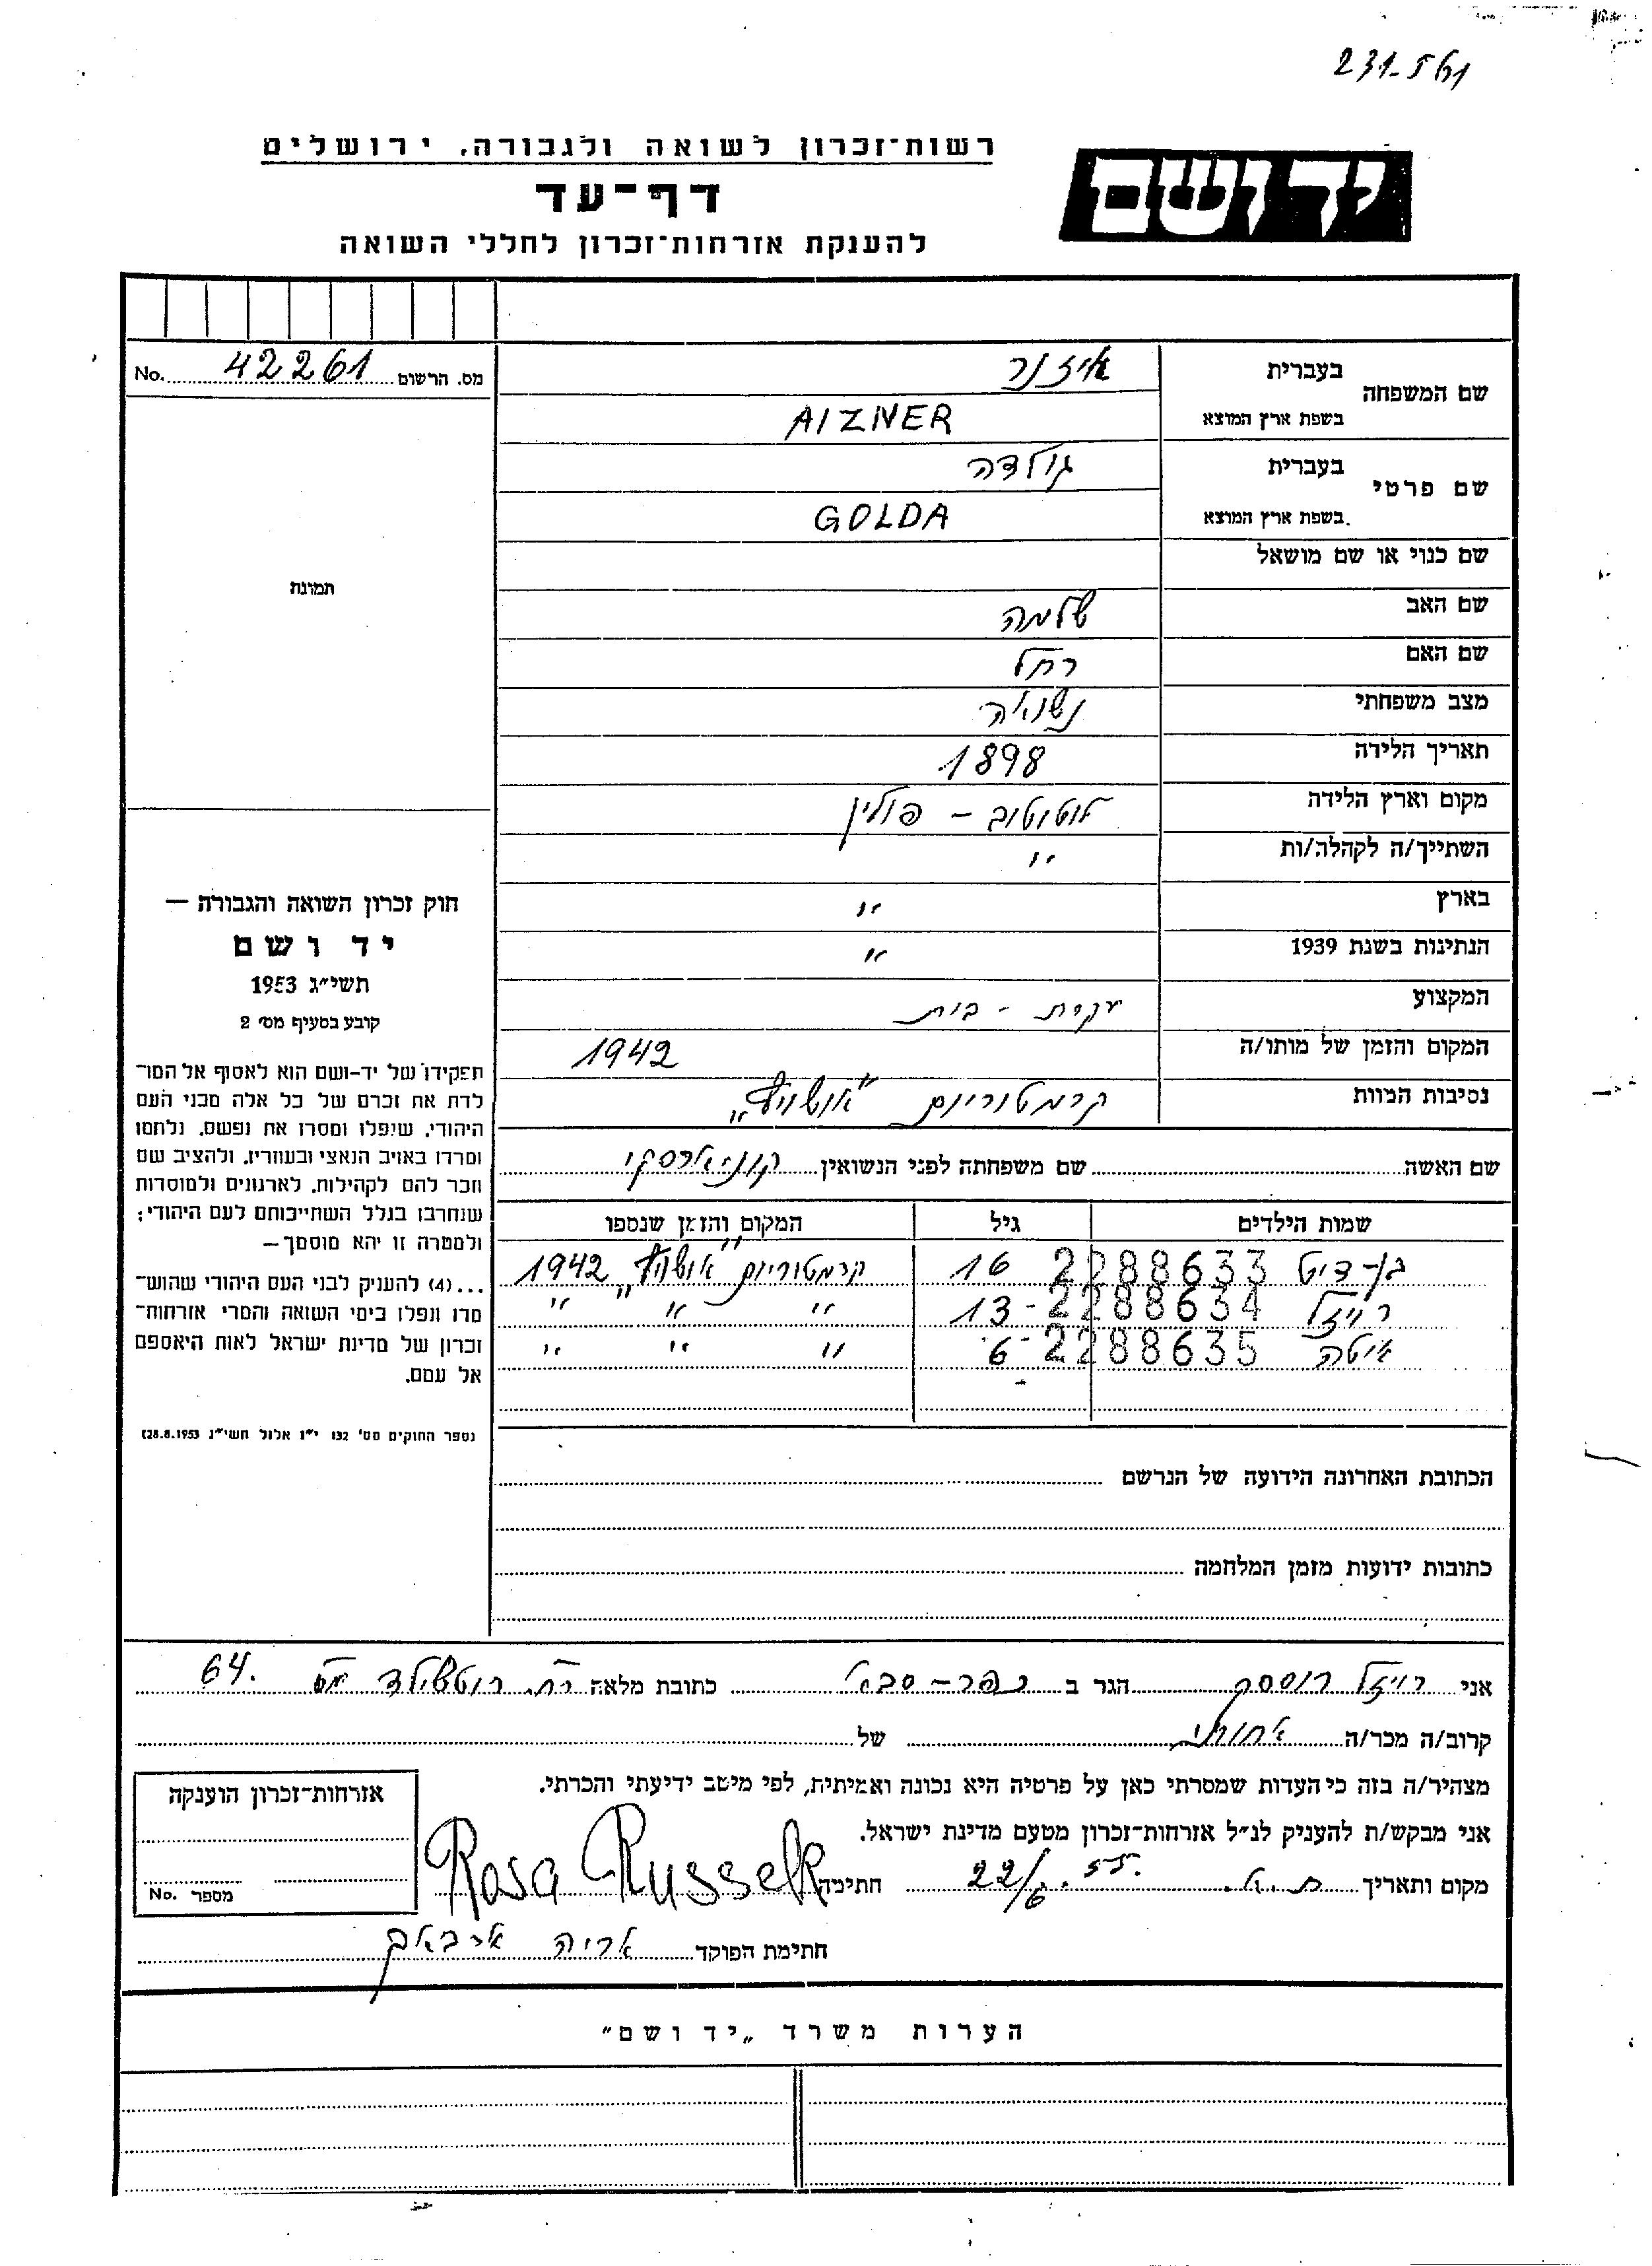 231-561
רשות־זכרון לשואה ולגבורה, ירושלים
דף־עד
להענקת אזרחות־זכרון לחללי השואה
יד ושם
מס. הרשום 42261 No.
שם המשפחה
בעברית איזנר
בשפת ארץ המוצא AIZNER
שם פרטי
בעברית גולדה
בשפת ארץ המוצא GOLDA
שם כנוי או שם מושאל
שם האב שלמה
שם האם רחל
מצב משפחתי נשואה
תאריך הלידה 1898
מקום וארץ הלידה פולין
השתייך/ה לקהלה/ות "
בארץ "
הנתינות בשנת 1939 "
המקצוע עקרת - בית
המקום והזמן של מותו/ה 1942
נסיבות המוות קרמטוריום "אושויץ"
תמונה
חוק זכרון השואה והגבורה —
יד ושם
תשי״ג 1953
קובע בסעיף מס׳ 2
תפקידו של יד-ושם הוא לאסוף אל המו־
לדת את זכרם של כל אלה מבני העם
היהודי, שנפלו ומסרו את נפשם, נלחמו
ומרדו באויב הנאצי ובעוזריו, ולהציב שם
וזכר להם לקהילות, לארגונים ולמוסדות
שנחרבו בגלל השתייכותם לעם היהודי;
ולמטרה זו יהא מוסמך —
...(4) להעניק לבני העם היהודי שהוש־
מדו ונפלו בימי השואה והמרי אזרחות־
זכרון של מדינת ישראל לאות היאספם
אל עמם.
(ספר החוקים מס׳ 132 י״ז אלול תשי״ג 28.8.1953)
שם האשה שם משפחתה לפני הנשואין
שמות הילדים גיל המקום והזמן שנספו
2288633 16 קרמטוריום "אושויץ" 1942
רויזל 2288634 13 " " "
איטה 2288635 6 " " "
הכתובת האחרונה הידועה של הנרשם
כתובות ידועות מזמן המלחמה
אני רויזל רוססק הגר ב כפר-סבא כתובת מלאה רח. רוטשילד מס 64.
קרוב/ה מכר/ה אחותי של
מצהיר/ה בזה כי העדות שמסרתי כאן על פרטיה היא נכונה ואמיתית, לפי מיטב ידיעתי והכרתי.
אני מבקש/ת להעניק לנ״ל אזרחות־זכרון מטעם מדינת ישראל.
מקום ותאריך ת.א. 22/6.55. חתימה Rosa Russek
אזרחות־זכרון הוענקה
מספר No.
חתימת הפוקד אריה
הערות משרד „יד ושם"